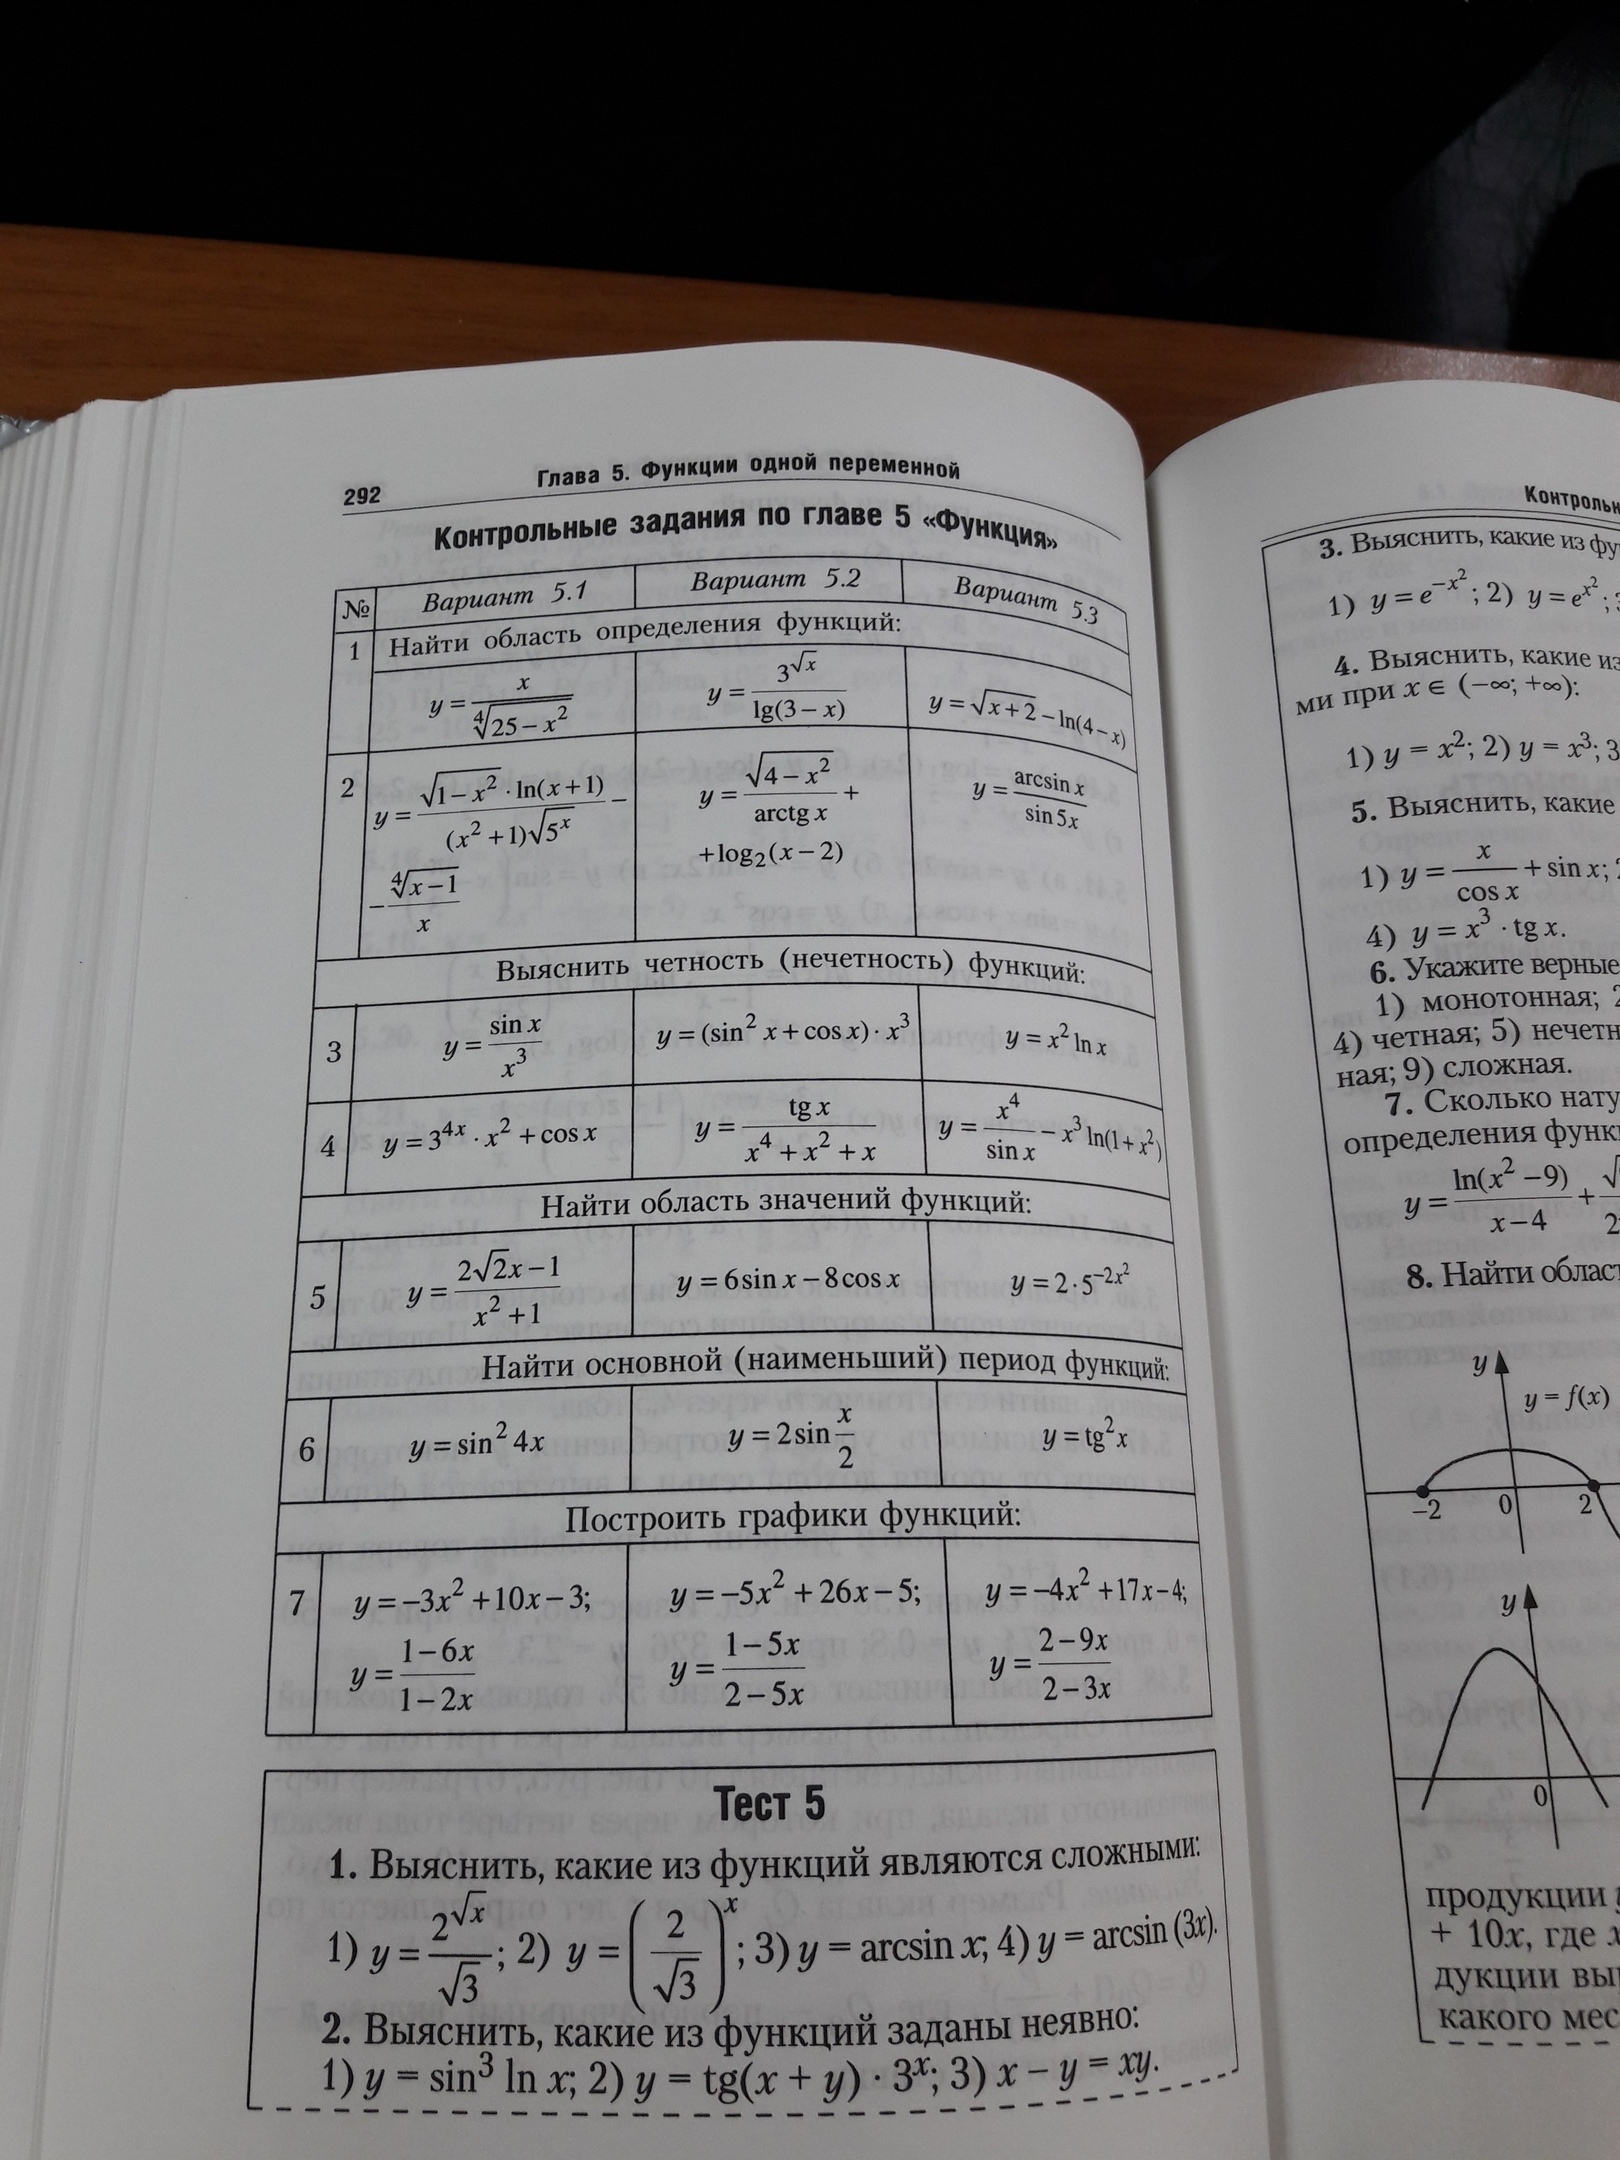 292
Глава 5. Функции одной переменной
Контрольные задания по главе 5 «Функция»
№ Вариант 5.1 Вариант 5.2 Вариант 5.3
1 Найти область определения функций:
y = x/∜(25 − x²) y = 3^√x/lg(3 − x) y = √(x + 2) − ln(4 − x)
2 y = √(1 − x²) · ln(x + 1)/((x² + 1)√(5^x)) − y = √(4 − x²)/arctg x + y = arcsin x/sin 5x
− ∜(x − 1)/x + log₂(x − 2)
Выяснить четность (нечетность) функций:
3 y = sin x/x³ y = (sin² x + cos x) · x³ y = x² ln x
4 y = 3^(4x) · x² + cos x y = tg x/(x⁴ + x² + x) y = x⁴/sin x − x³ ln(1 + x²)
Найти область значений функций:
5 y = (2√2x − 1)/(x² + 1) y = 6 sin x − 8 cos x y = 2 · 5^(−2x²)
Найти основной (наименьший) период функций:
6 y = sin² 4x y = 2 sin x/2 y = tg² x
Построить графики функций:
7 y = −3x² + 10x − 3; y = −5x² + 26x − 5; y = −4x² + 17x − 4;
y = (1 − 6x)/(1 − 2x) y = (1 − 5x)/(2 − 5x) y = (2 − 9x)/(2 − 3x)
Тест 5
1. Выяснить, какие из функций являются сложными:
1) y = 2^√x/√3; 2) y = (2/√3)^x; 3) y = arcsin x; 4) y = arcsin (3x).
2. Выяснить, какие из функций заданы неявно:
1) y = sin³ ln x; 2) y = tg(x + y) · 3^x; 3) x − y = xy.
3. Выяснить, какие из
1) y = e^(−x²); 2) y = e^(x²);
4. Выяснить, какие
ми при x ∈ (−∞; +∞):
1) y = x²; 2) y = x³; 3
5. Выяснить, какие
1) y = x/cos x + sin x;
4) y = x³ · tg x.
6. Укажите верные
1) монотонная; 2
4) четная; 5)
ная; 9) сложная.
7. Сколько
определения
y = ln(x² − 9)/(x − 4) +
8. Найти
y
y = f(x)
−2 0 2
y
0
продукции
+ 10x, где x
какого